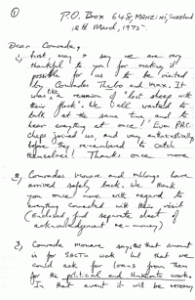 ①
P.O. Box 648, MANZINI, Swaziland
12th March, 1975
Dear Comrade,
1, First, may I say we are very
thankful to you for making it
possible for us to be visited
by Comrades Thebo and Max. It
was like the reunion of 'lost sheep with
their flock'. We all wanted to
talk at the same time and to
hear everything at once! Even PRC
chaps joined us, and very enthusiastically,
before they remembered to catch
themselves! Thanks once more
2, Comrades Monare and Mhlongo have
arrived safely back. We thank
you once more with regard to
everything connected with their visit
(Enclosed find separate sheet of
acknowledgement re-money)
3, Comrade Monare says that amount
is for SACTU work but that we
could ask for from them
for the political and
In that event it will be necessary